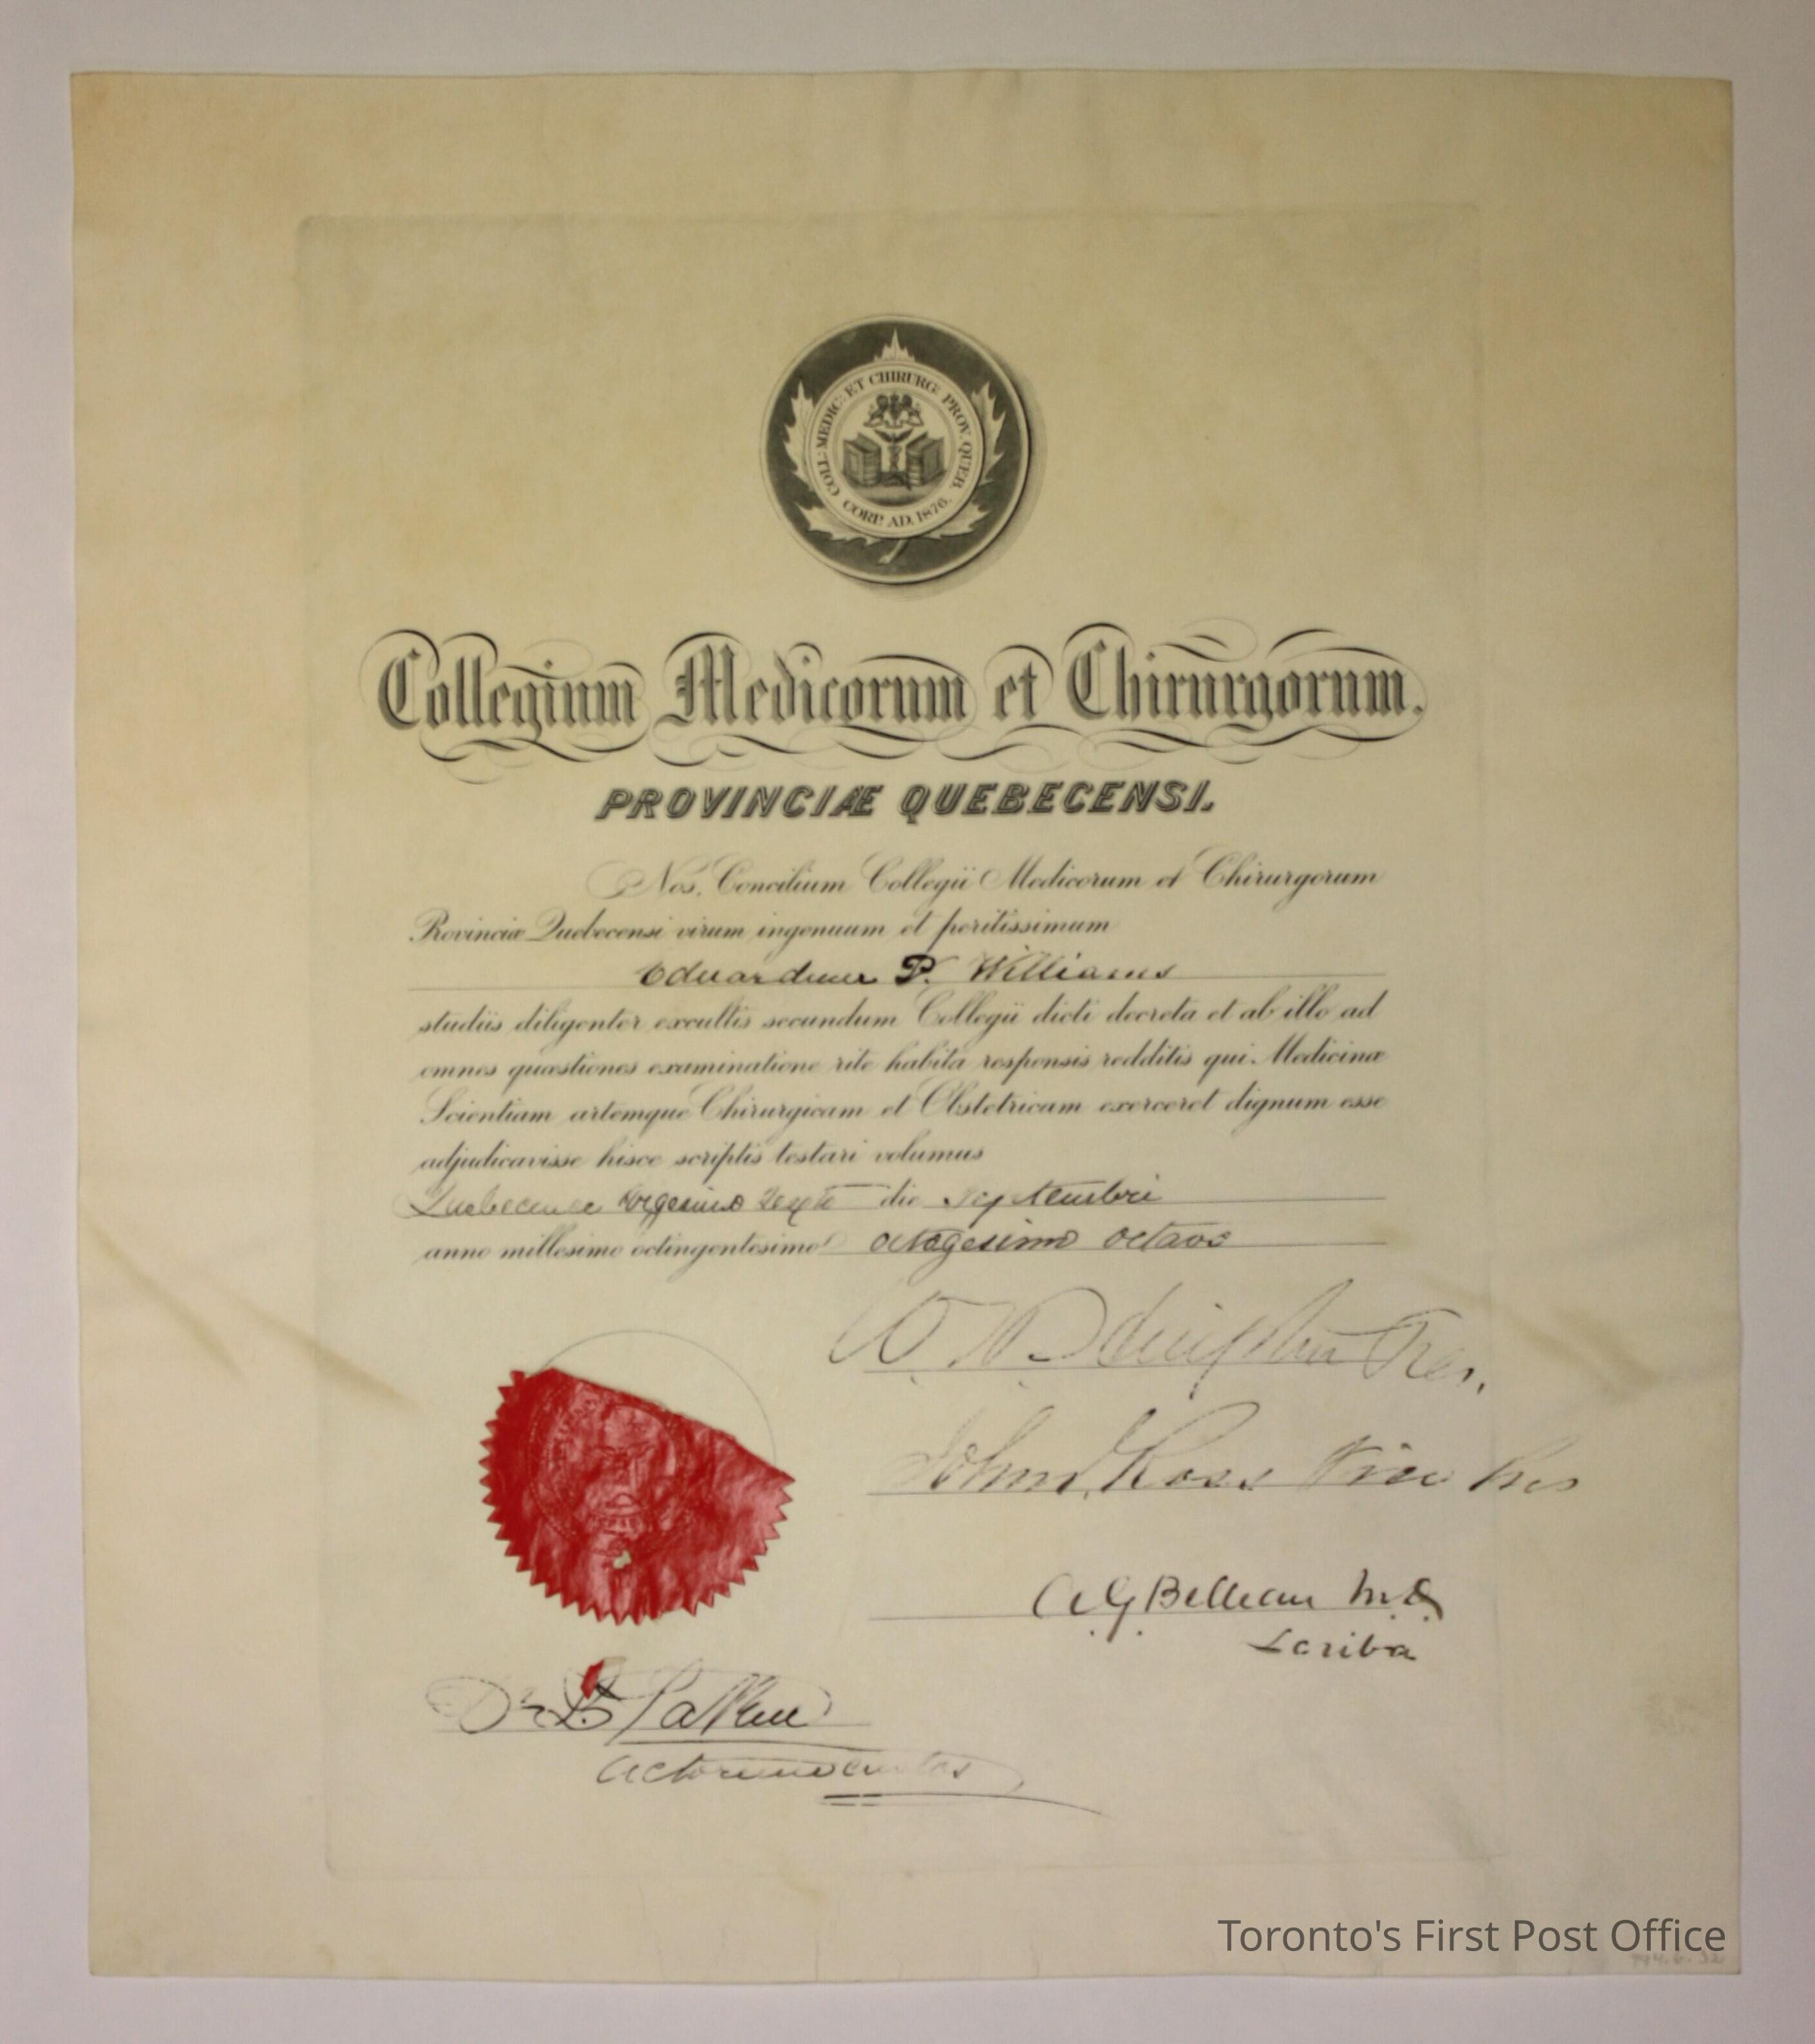 COLL: MEDIC: ET CHIRURG: PROV. QUEB.
CORP. AD. 1876.
Collegium Medicorum et Chirurgorum.
PROVINCIÆ QUEBECENSI.
Nos. Concilium Collegii Medicorum et Chirurgorum
Provinciæ Quebecensi virum ingenuum et peritissimum
Eduardum P. Williams
studiis diligenter excultis secundum Collegii dicti decreta et ab illo ad
omnes quæstiones examinatione rite habita responsis redditis qui Medicinæ
Scientiam artemque Chirurgicam et Obstetricam exerceret dignum esse
adjudicavisse hisce scriptis testari volumus
die Septembri
anno millesimo octingentesimo octogesimo octavo
John Ross Vice Pres
A. G. Belleau M.D.
Scriba
Toronto's First Post Office